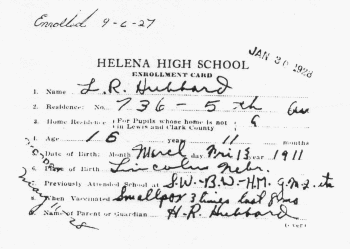 Enrolled 9-6-27
JAN 30 1928
HELENA HIGH SCHOOL
ENROLLMENT CARD
1. Name L. R. Hubbard
2. Residence: No. 736 - 5th Ave
3. Home Residence (For Pupils whose home is not in Lewis and Clark County)
4. Age 16 years 11 months
5. Date of Birth: Month March day Fri 13 year 1911
6. Place of Birth Lincoln Nebr.
7. Previously Attended School at S.W.-B.W.-H.M. G.M.2. etc
8. When Vaccinated Smallpox 3 times last 8 mo
9. Name of Parent or Guardian H. R. Hubbard
May
28